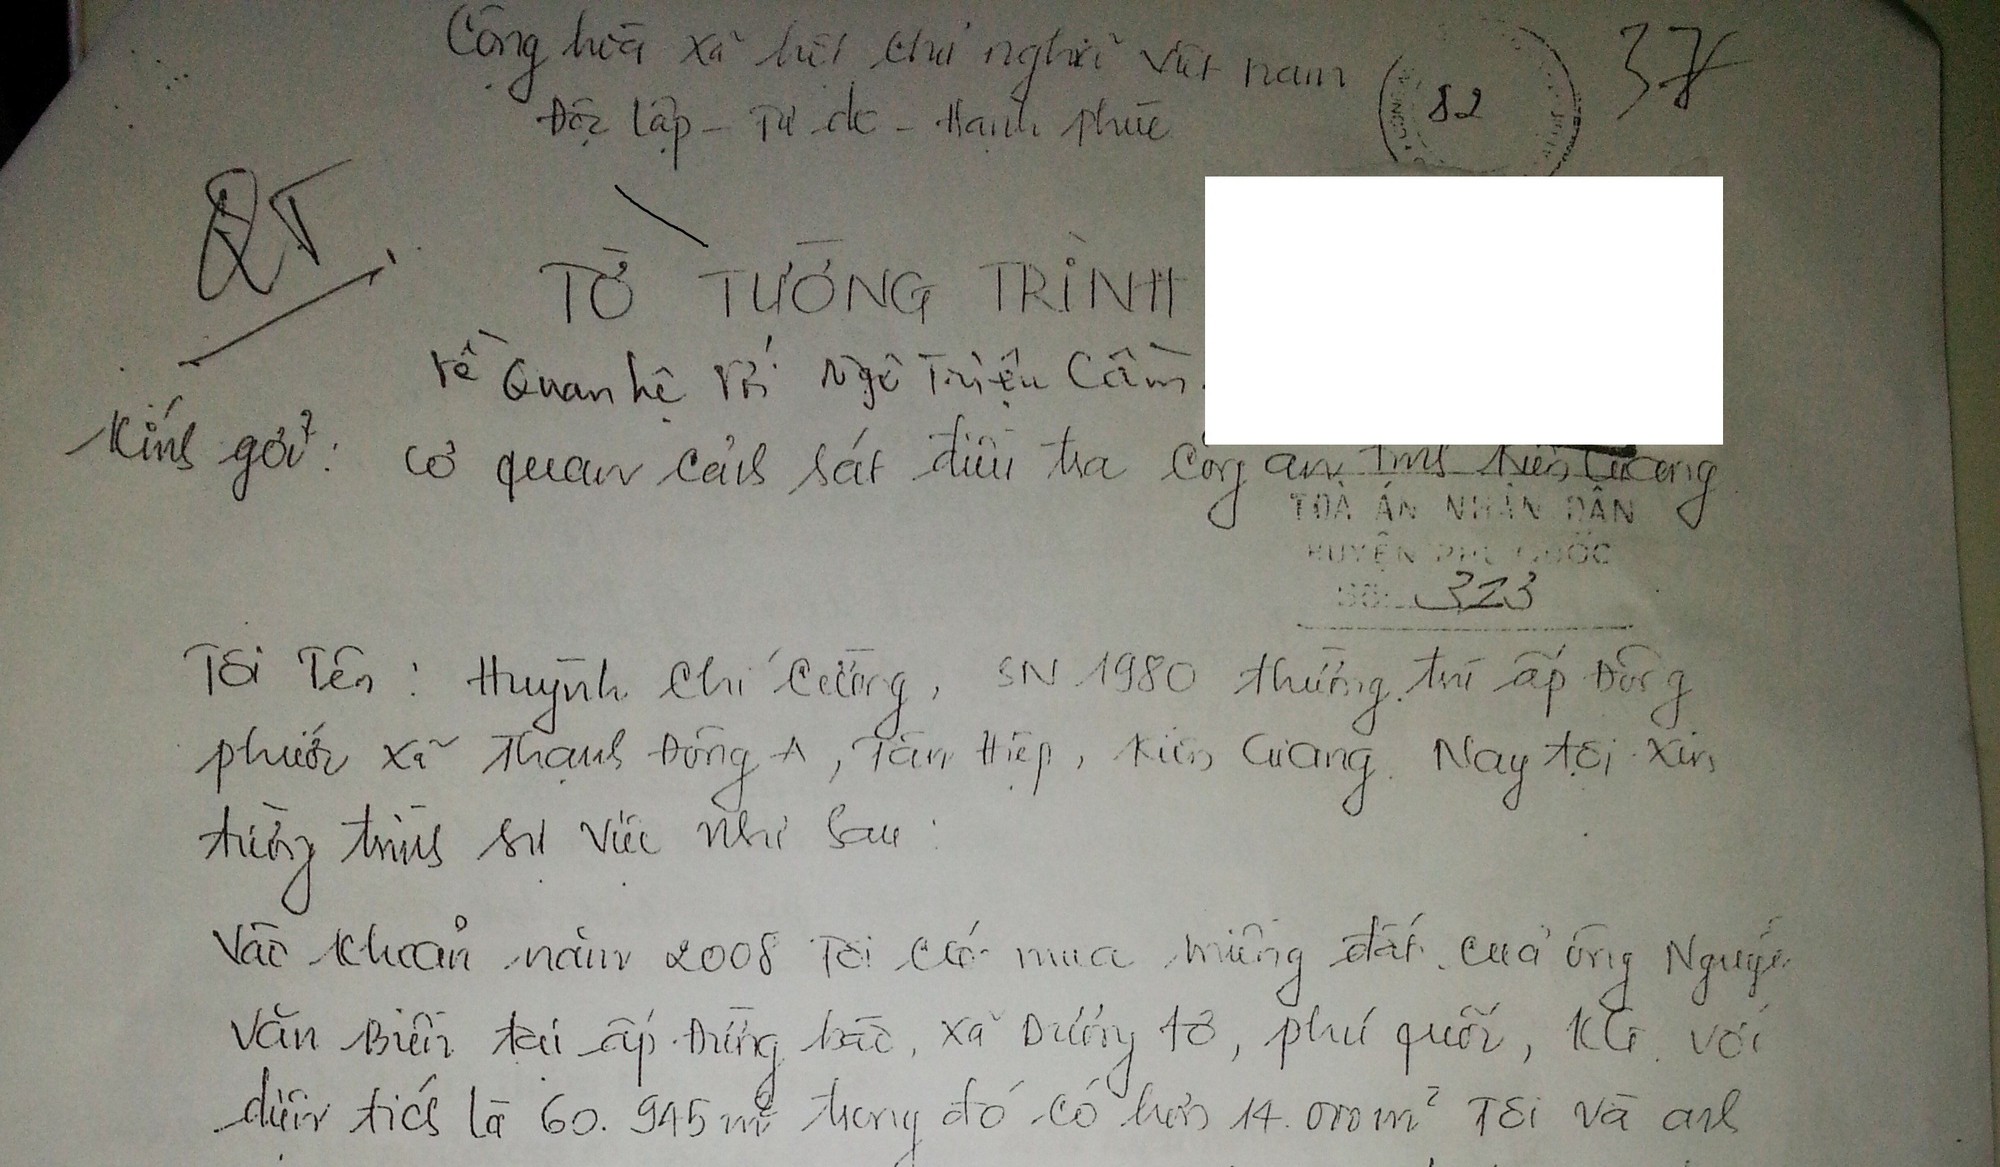 Cộng hòa xã hội chủ nghĩa Việt nam
82
37
Độc lập - Tự do - Hạnh phúc
QT
TỜ TƯỜNG TRÌNH
Về Quan hệ với Ngô Triệu Cầm.
Kính gởi: Cơ quan cảnh sát điều tra Công an Tỉnh Kiên Giang
TOÀ ÁN NHÂN DÂN
HUYỆN PHÚ QUỐC
SỐ: 323
Tôi Tên: Huỳnh Chí Cường, SN 1980 thường trú ấp Đông
phước xã Thạnh Đông A, Tân Hiệp, Kiên Giang. Nay tôi xin
tường trình sự việc như sau:
Vào khoản năm 2008 Tôi có mua miếng đất của ông Nguyễn
Văn Biển tại ấp Đường bào, xã Dương tơ, phú quốc, KG. với
diện tích là 60.945m² trong đó có hơn 14.000m² Tôi và anh